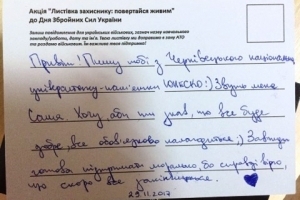 Акція "Листівка захиснику: повертайся живим"
до Дня Збройних Сил України
Привіт! Пишу тобі з Чернівецького національн.
університету - пам'ятки ЮНЕСКО:) Звуть мене
Саша. Хочу, аби ти знав, що все буде
добре, все обов'язково налагодиться:) Завжди
готова підтримати морально, бо справді вірю,
що скоро все закінчиться.
29.11.2017